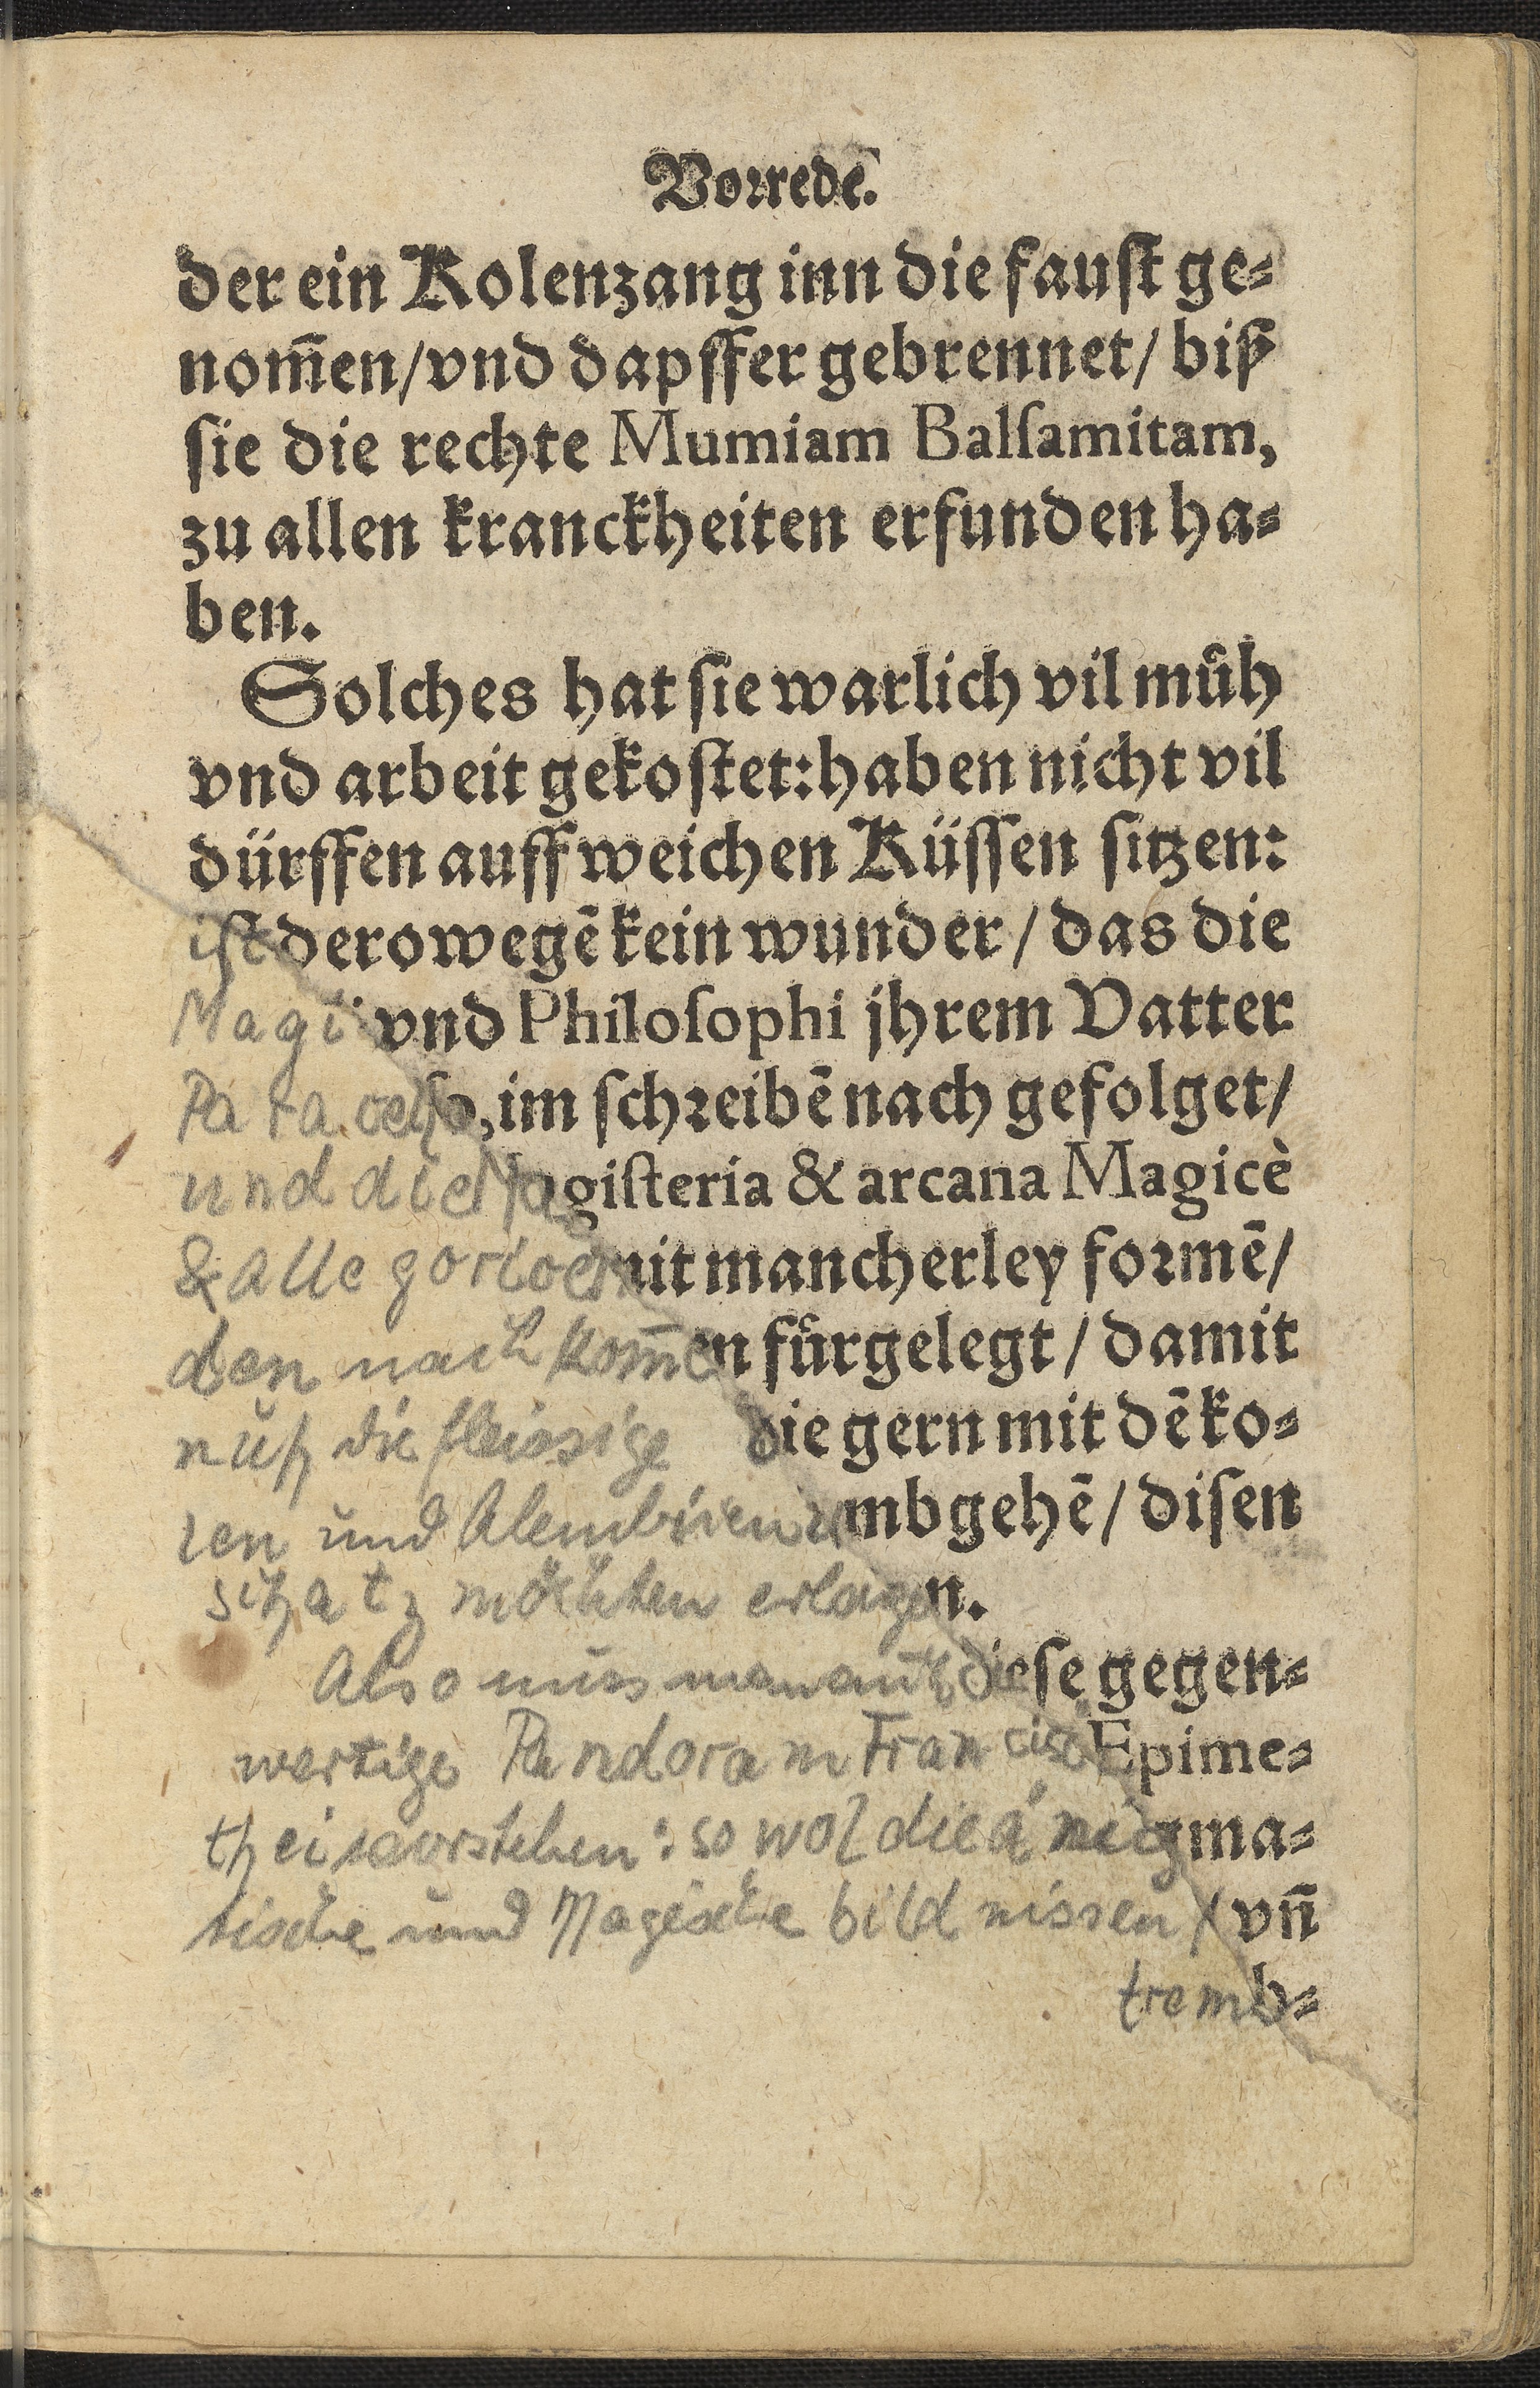 Vorrede.
der ein Kolenzang inn die faust ge⸗
nom̄en/vnd dapffer gebrennet/ biß
sie die rechte Mumiam Balſamitam,
zu allen kranckheiten erfunden ha⸗
ben.
Solches hat sie warlich vil muͤh
vnd arbeit gekostet: haben nicht vil
dürffen auff weichen Küssen sitzen:
ist derowegē kein wunder / das die
Magi vnd Philoſophi jhrem Vatter
Paracelſo, im schreibē nach gefolget/
und die Magiſteria & arcana Magicè
& allegoricè mit mancherley formē/
den nachkom̄en fuͤrgelegt / damit
nuh die fleissige die gern mit dē ko⸗
len und Alembicen umbgehē / disen
schatz möchten erlangen.
Also mus man auch diese gegen⸗
wertige Pandoram Francisci Epime⸗
thei verstehen: so wol die änigma⸗
tische und Magische bildnissen / vn̄
fremb⸗